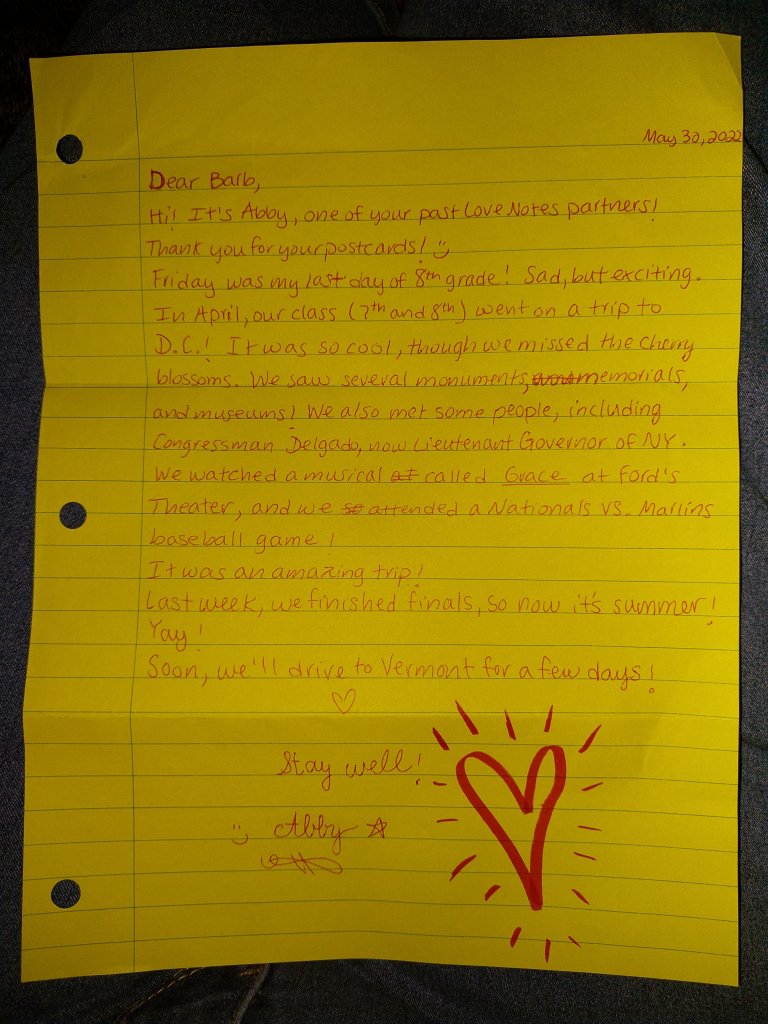 May 30, 2022
Dear Barb,
Hi! It's Abby, one of your past Love Notes partners!
Thank you for your postcards! :)
Friday was my last day of 8th grade! Sad, but exciting.
In April, our class (7th and 8th) went on a trip to
D.C.! It was so cool, though we missed the cherry
blossoms. We saw several monuments, memorials,
and museums! We also met some people, including
Congressman Delgado, now Lieutenant Governor of NY.
We watched a musical at called Grace at Ford's
Theater, and we so attended a Nationals VS. Marlins
baseball game!
It was an amazing trip!
Last week, we finished finals, so now it's summer!
Yay!
Soon, we'll drive to Vermont for a few days!
♡
Stay well!
:) Abby ☆